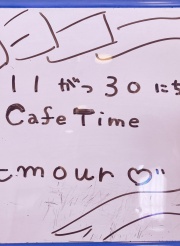 11 がつ 30 にち
Cafe Time
mour♡"